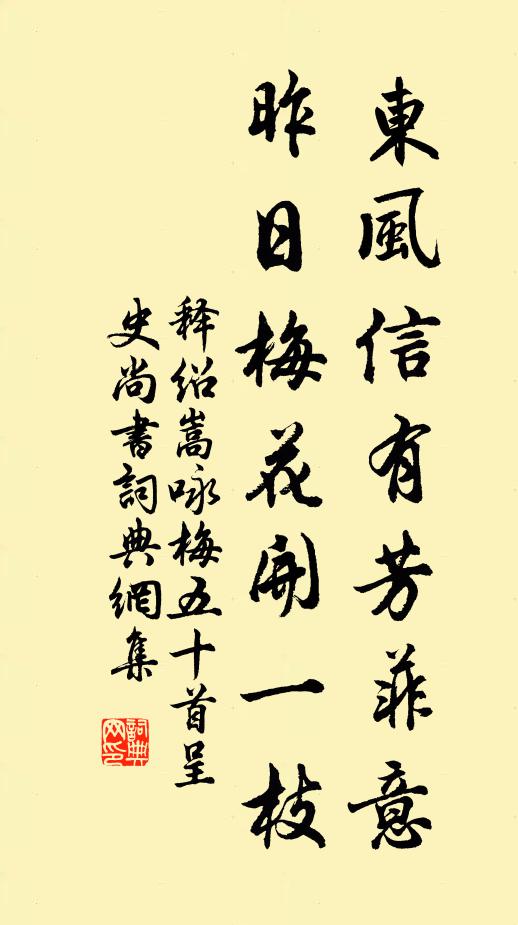 東風信有芳菲意
昨日梅花開一枝
释绍嵩咏梅五十首呈
史尚書詞典網集
詞典
网印